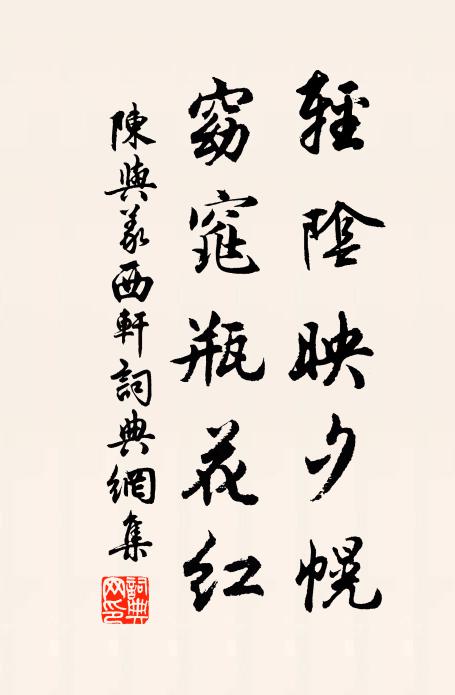 輕陰映夕幌
窈窕瓶花紅
陳與義西軒詞典網集
詞典网印